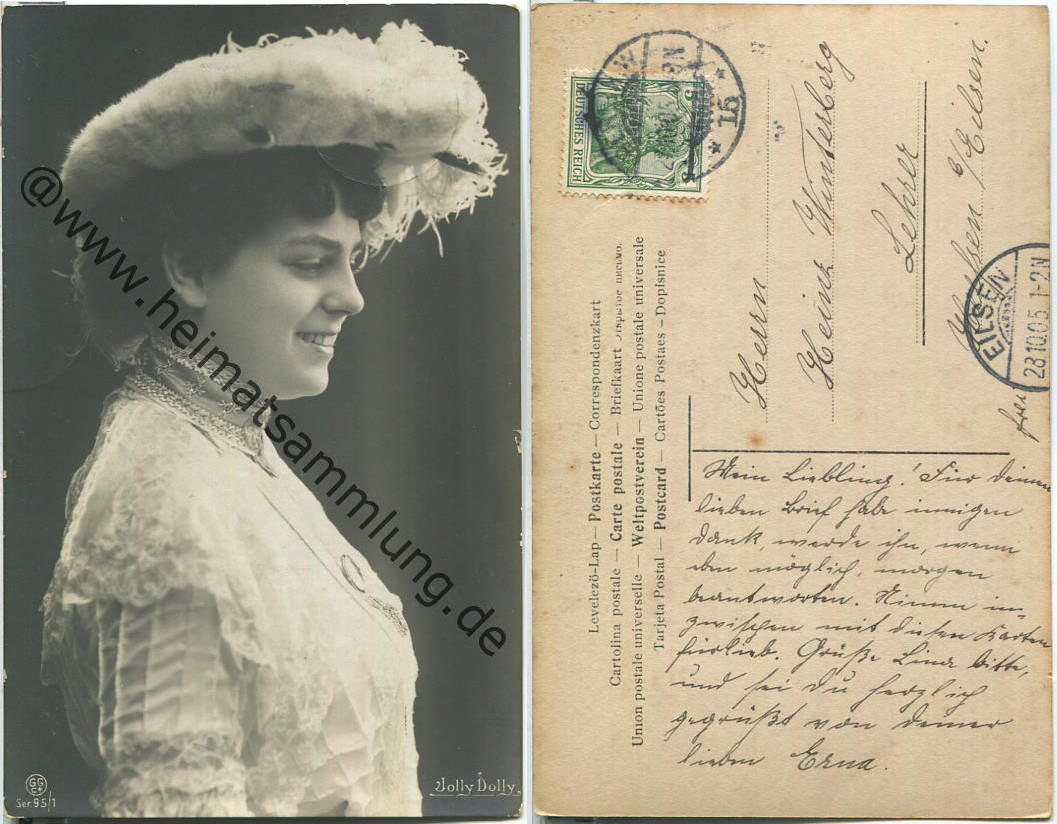 @www.heimatsammlung.de
GG
Co
Ser 95/1
Jolly Dolly.
DEUTSCHES REICH
5
W
8N
* 15 *
Herrn
Heinz Winterberg
Lehrer
b/Eilsen.
EILSEN
28.10.05.1-2N
frei
Levelező-Lap — Postkarte — Correspondenzkart
Cartolina postale — Carte postale — Briefkaart Открытое письмо.
Union postale universelle — Weltpostverein — Unione postale universale
Tarjeta Postal — Postcard — Cartões Postaes — Dopisnice
Mein Liebling! Für deinen
lieben Brief habe innigen
Dank, werde ihn, wenn
eben möglich, morgen
beantworten. Nimm in-
zwischen mit diesen Karten
fürlieb. Grüße Lina bitte,
und sei du herzlich
gegrüßt von deiner
lieben Erna.